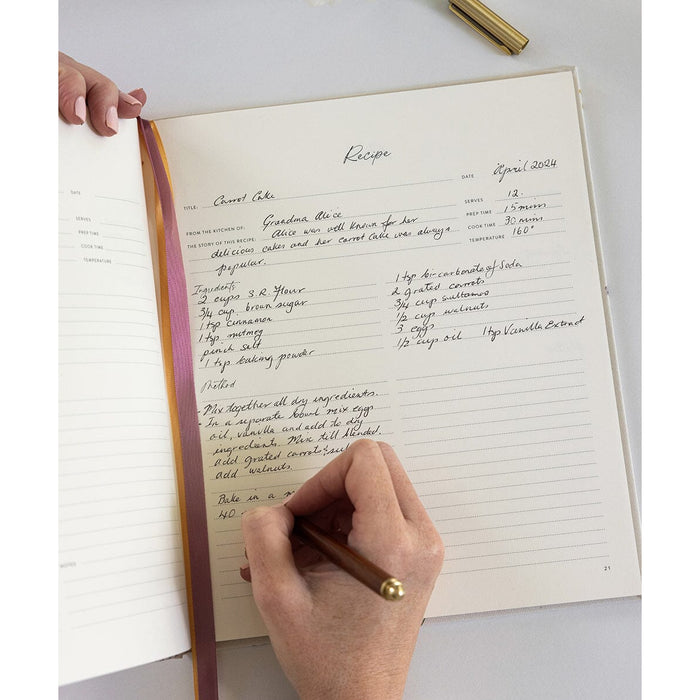 Recipe
DATE April 2024
TITLE: Carrot Cake
SERVES 12.
FROM THE KITCHEN OF: Grandma Alice
PREP TIME 15 mins
THE STORY OF THIS RECIPE: Alice was well known for her
COOK TIME 30 mins
delicious cakes and her carrot cake was always
TEMPERATURE 160°
popular.
Ingredients
2 cups S.R. Flour
3/4 cup brown sugar
1 tsp cinnamon
1 tsp nutmeg
pinch salt
1 tsp baking powder
1 tsp bicarbonate of Soda
2 grated carrots
3/4 cup sultanas
1/2 cup walnuts
3 eggs
1/2 cup oil 1 tsp Vanilla Extract
Method
- Mix together all dry ingredients.
- In a separate bowl mix eggs
oil, vanilla and add to dry
ingredients. Mix till blended.
add grated carrots &
add walnuts.
Bake in a
40
21
DATE
SERVES
PREP TIME
COOK TIME
TEMPERATURE
NOTES